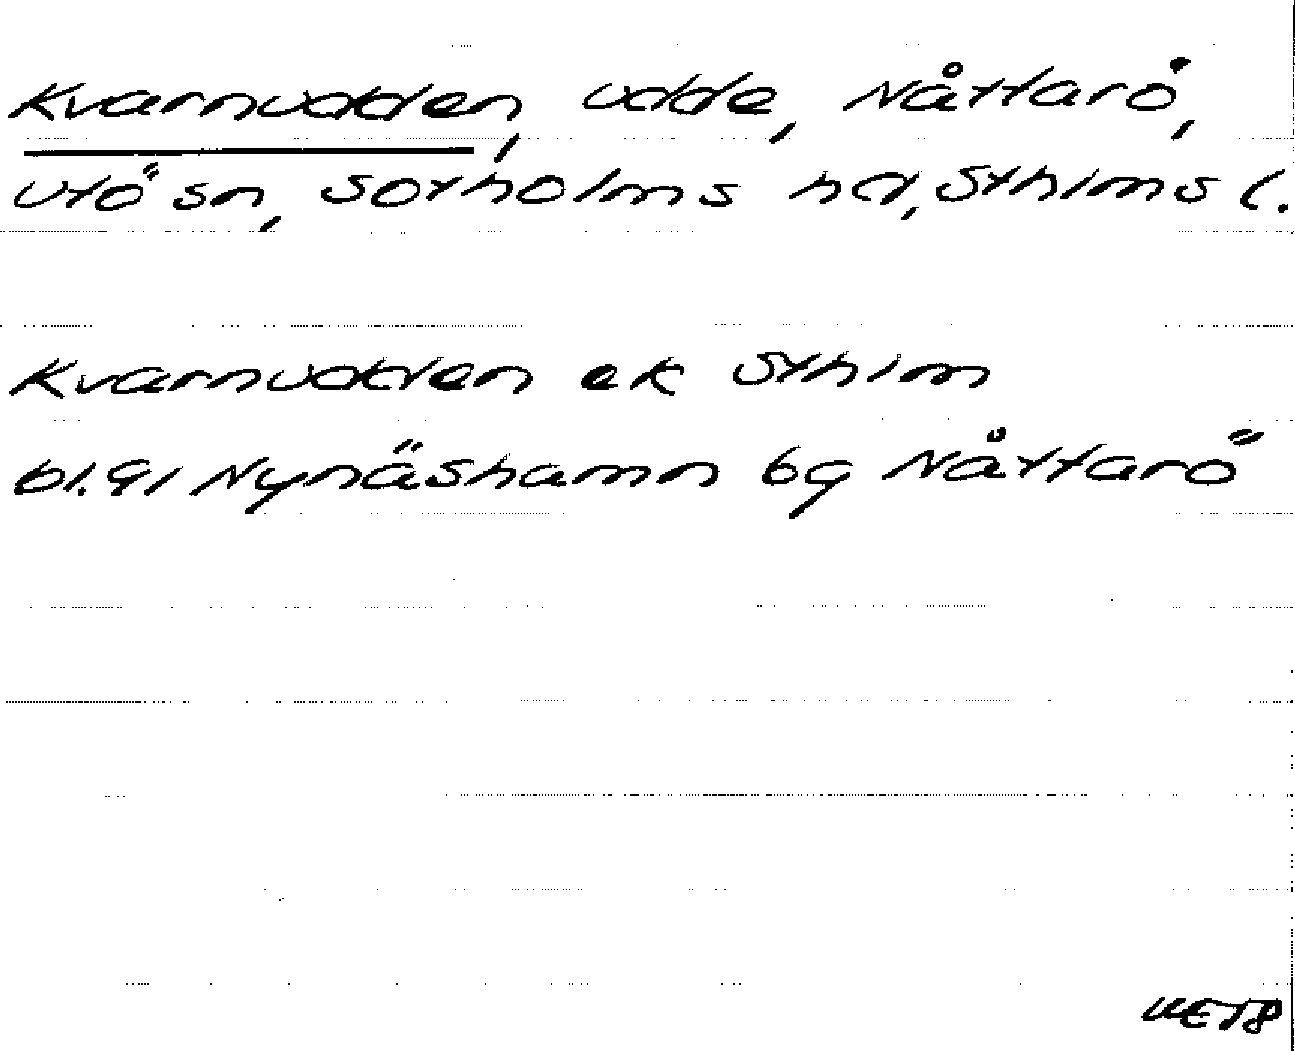 Kvarnudden, udde, Nåttarö,
Utö sn, Sotholms hd, Sthlms l.
Kvarnudden ek Sthlm
bl. 91 Nynäshamn 6g Nåttarö